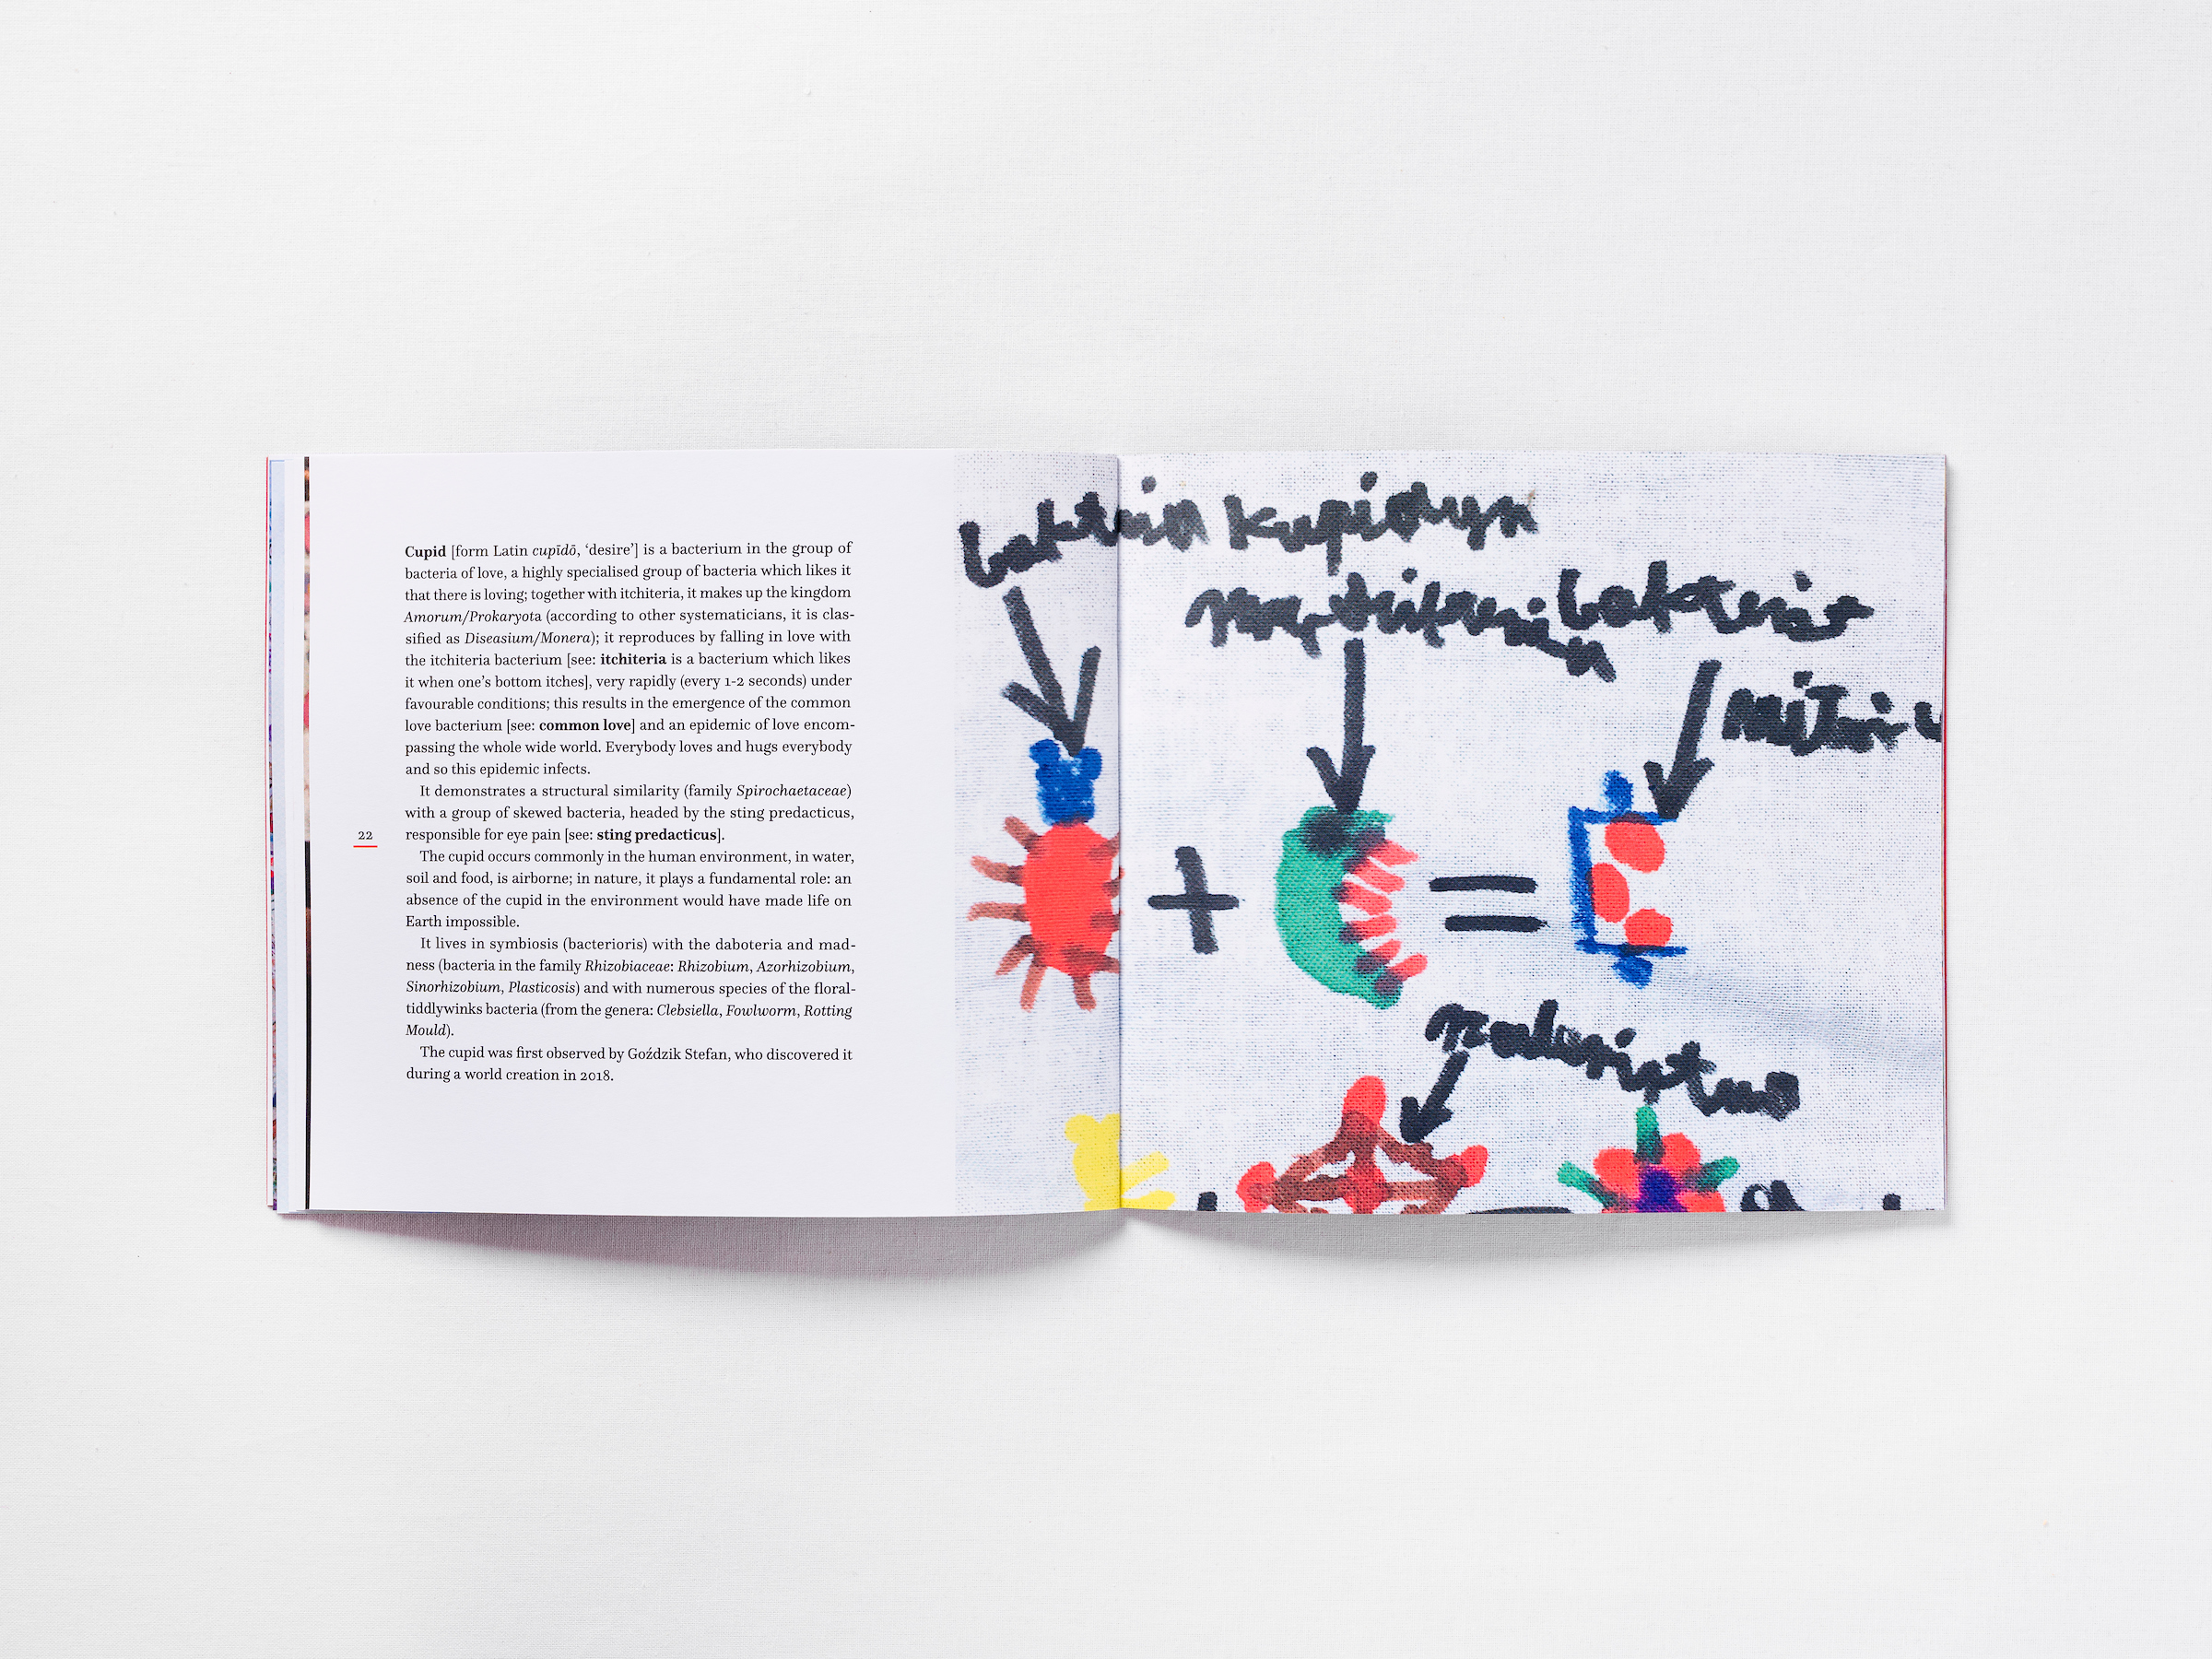 Cupid [form Latin cupīdō, ‘desire’] is a bacterium in the group of
bacteria of love, a highly specialised group of bacteria which likes it
that there is loving; together with itchiteria, it makes up the kingdom
Amorum/Prokaryota (according to other systematicians, it is clas-
sified as Diseasium/Monera); it reproduces by falling in love with
the itchiteria bacterium [see: itchiteria is a bacterium which likes
it when one’s bottom itches], very rapidly (every 1-2 seconds) under
favourable conditions; this results in the emergence of the common
love bacterium [see: common love] and an epidemic of love encom-
passing the whole wide world. Everybody loves and hugs everybody
and so this epidemic infects.
It demonstrates a structural similarity (family Spirochaetaceae)
with a group of skewed bacteria, headed by the sting predacticus,
responsible for eye pain [see: sting predacticus].
22
The cupid occurs commonly in the human environment, in water,
soil and food, is airborne; in nature, it plays a fundamental role: an
absence of the cupid in the environment would have made life on
Earth impossible.
It lives in symbiosis (bacterioris) with the daboteria and mad-
ness (bacteria in the family Rhizobiaceae: Rhizobium, Azorhizobium,
Sinorhizobium, Plasticosis) and with numerous species of the floral-
tiddlywinks bacteria (from the genera: Clebsiella, Fowlworm, Rotting
Mould).
The cupid was first observed by Goździk Stefan, who discovered it
during a world creation in 2018.
bakteria kupidyn
bakteria
+ =